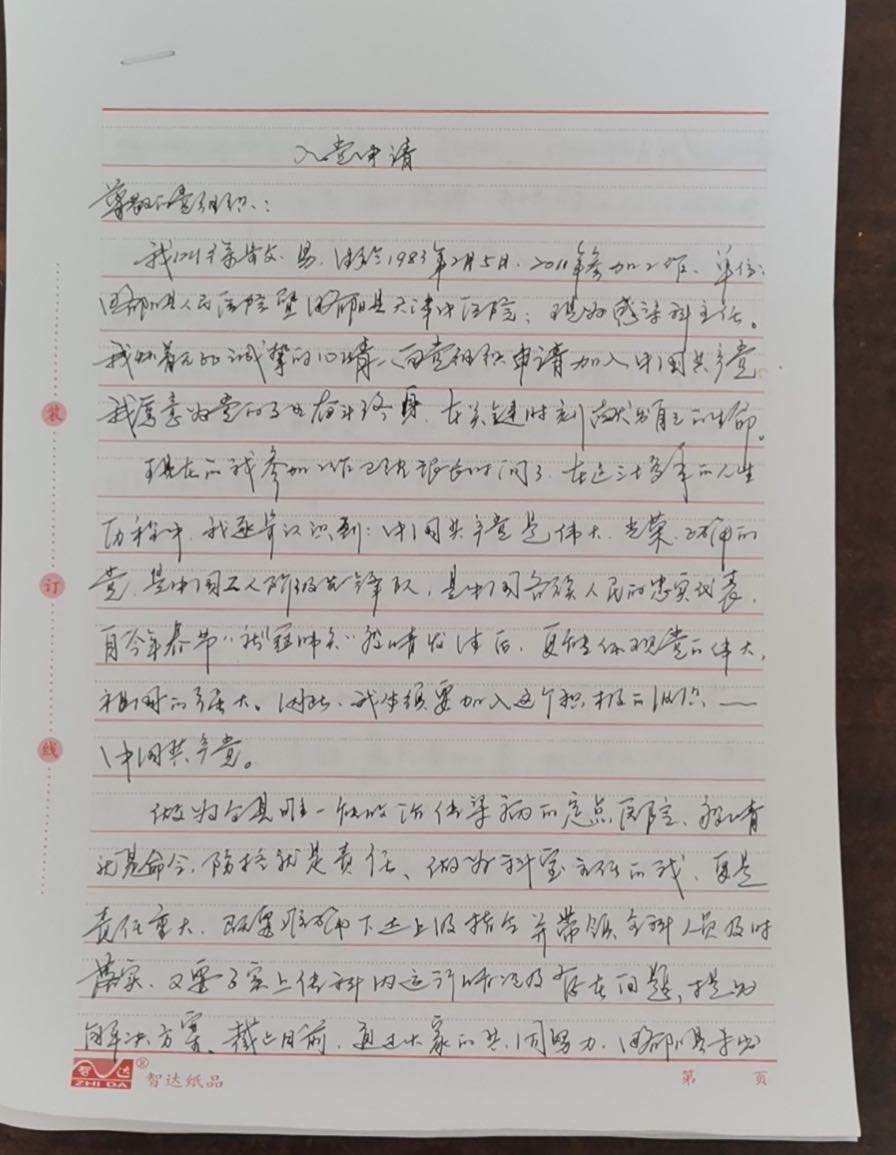 入党申请
尊敬的党组织：
我叫徐 文, 男, 生于1983年2月5日, 2011年参加工作, 单位:
西华县人民医院暨西华县天津中医院; 现为感染科主任。
我怀着无比诚挚的心情, 向党组织申请加入中国共产党
我愿意为党的事业奋斗终身, 在关键时刻献出自己的生命。
现在的我参加工作已经很长时间了, 在这三十多年的人生
历程中, 我逐步认识到: 中国共产党是伟大、光荣、正确的
党, 是中国工人阶级先锋队, 是中国各族人民的忠实代表,
自今年春节“新冠肺炎”疫情发生后, 更能体现党的伟大,
祖国的强大。因此, 我必须要加入这个积极的组织——
中国共产党。
做为全县唯一收治传染病的定点医院、疫情
就是命令, 防控就是责任、做为科室主任的我, 更是
责任重大, 既要准确下达上级指令并带领全科人员及时
落实, 又要了解上传科内运行情况及存在问题, 提出
解决方案。截止目前, 通过大家的共同努力,
装
订
线
智达
ZHI DA
®
智达纸品
第 页